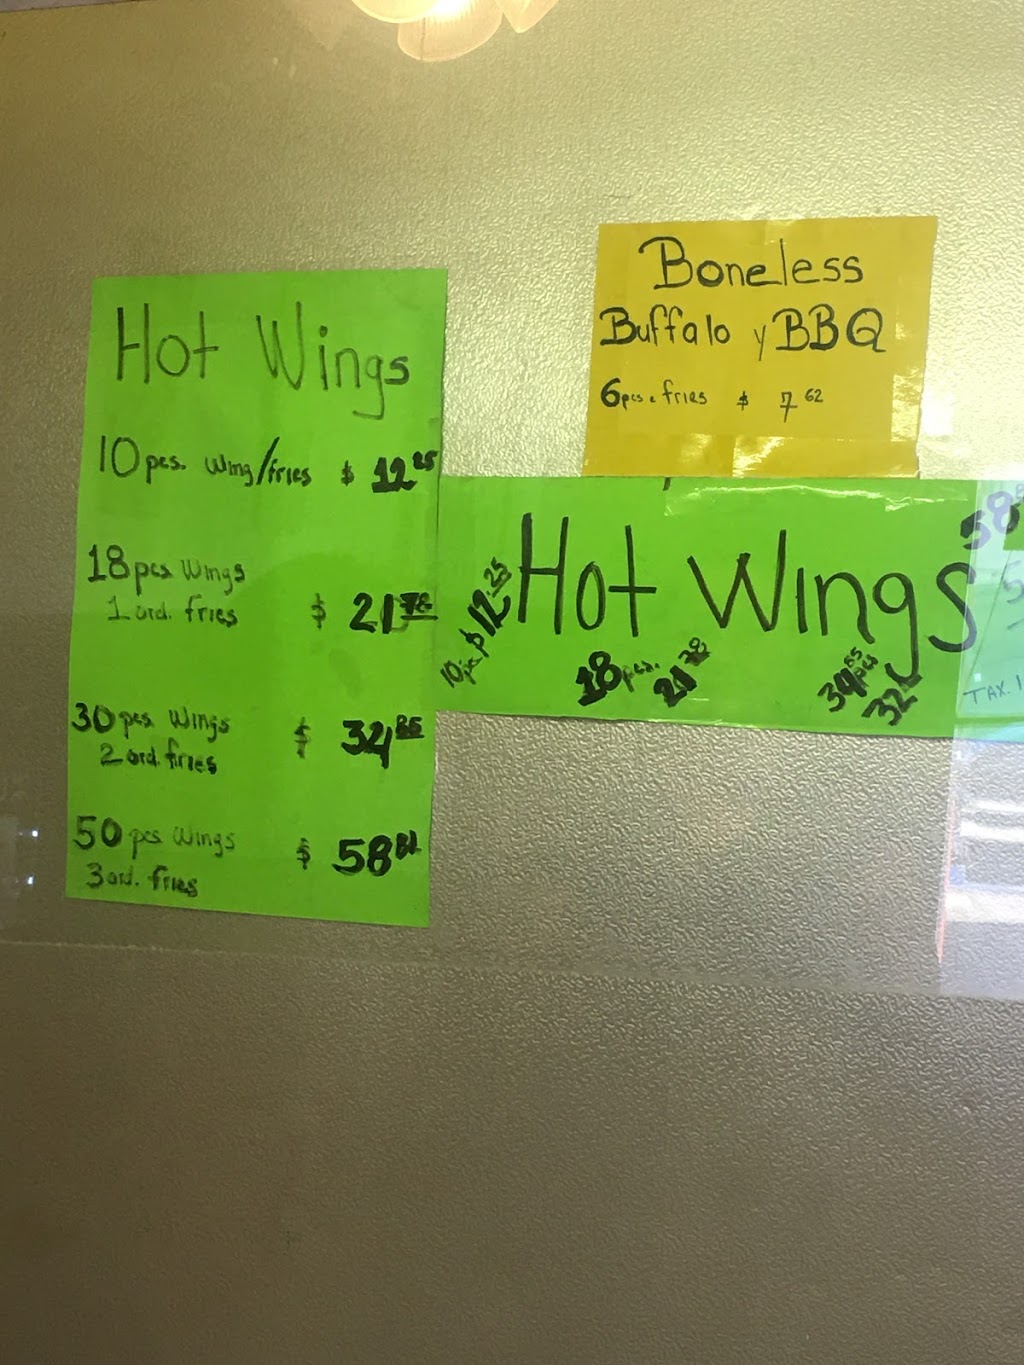 Hot Wings
10 pcs. wing/fries $ 12 25
18 pcs wings
1 ord. fries $ 21 78
30 pcs wings
2 ord. fries $
50 pcs wings
3 ord. fries $ 58 81
Boneless
Buffalo y BBQ
6 pcs fries $ 7 62
Hot Wings
10 pc $12.25
18 pcs. 21 78
pcs
58
TAX.